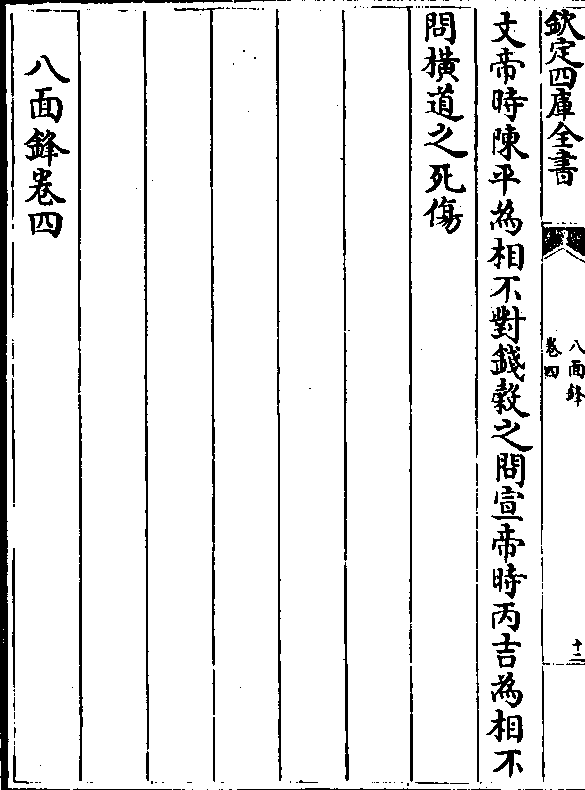 欽定四庫全書
八面鋒
卷四
十二
文帝時陳平為相不對錢穀之問宣帝時丙吉為相不
問橫道之死傷
八面鋒卷四